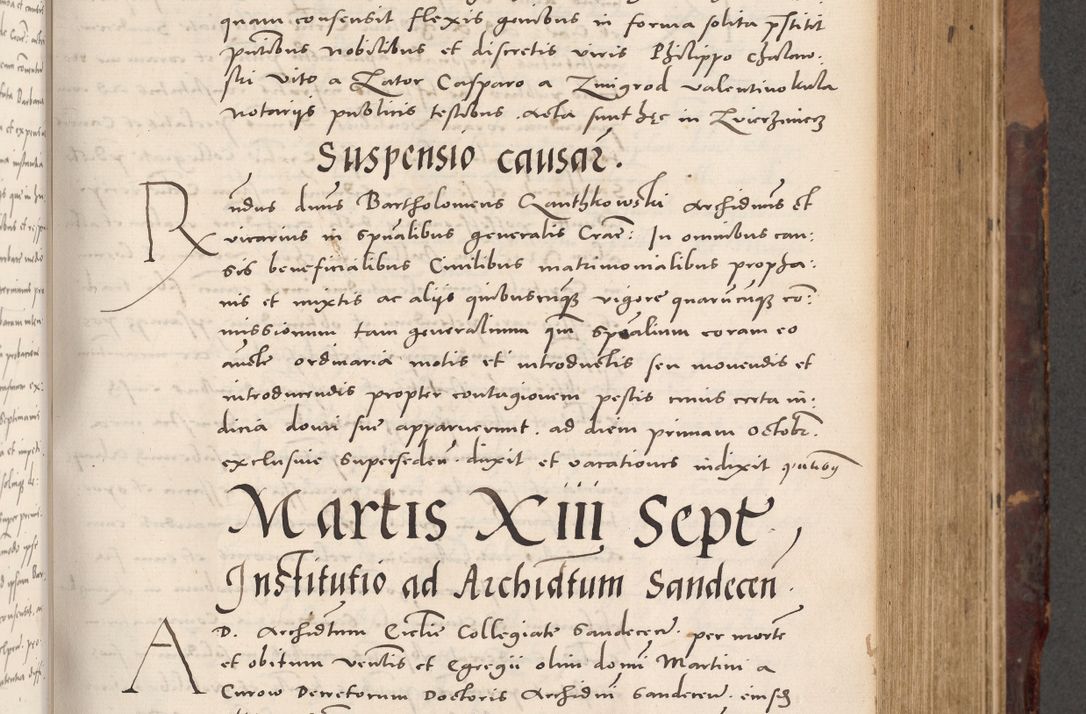 quam consensit flexis genibus in forma solita pstitit
pntibus nobilibus et discretis viris Philippo Chalaw:
ski vito a Lator Casparo a Zmigrod valentino kula
notariis publicis testibus. Acta sunt hęc in Zvierziniecz
Suspensio causar.
Rndus dnus Bartholomeus Ganthkowski Archidnus et
vicarius in spualibus generalis Crac: In omnibus cau:
sis beneficialibus Civilibus matrimonialibus propha:
nis et mixtis ac aliis quibuscunq vigore quarucuq co:
missionum tam generalium qm spealium coram eo
aucte ordinaria motis et introductis seu movendis et
introducendis propter contagionem pestis cuius certa in:
dicia domi sue apparuerunt. ad diem primam Octobr.
exclusive supersedendu duxit et vacationes indixit pntibus
Martis Xiii Sept
Institutio ad Archidtum Sandecen.
AD. Archidtum Ecclie Collegiate Sandecen. per morte
et obitum Venlis et Egregii olim domi Martini a
Curow Decretorum Doctoris Archidni Sandecen. eiusd